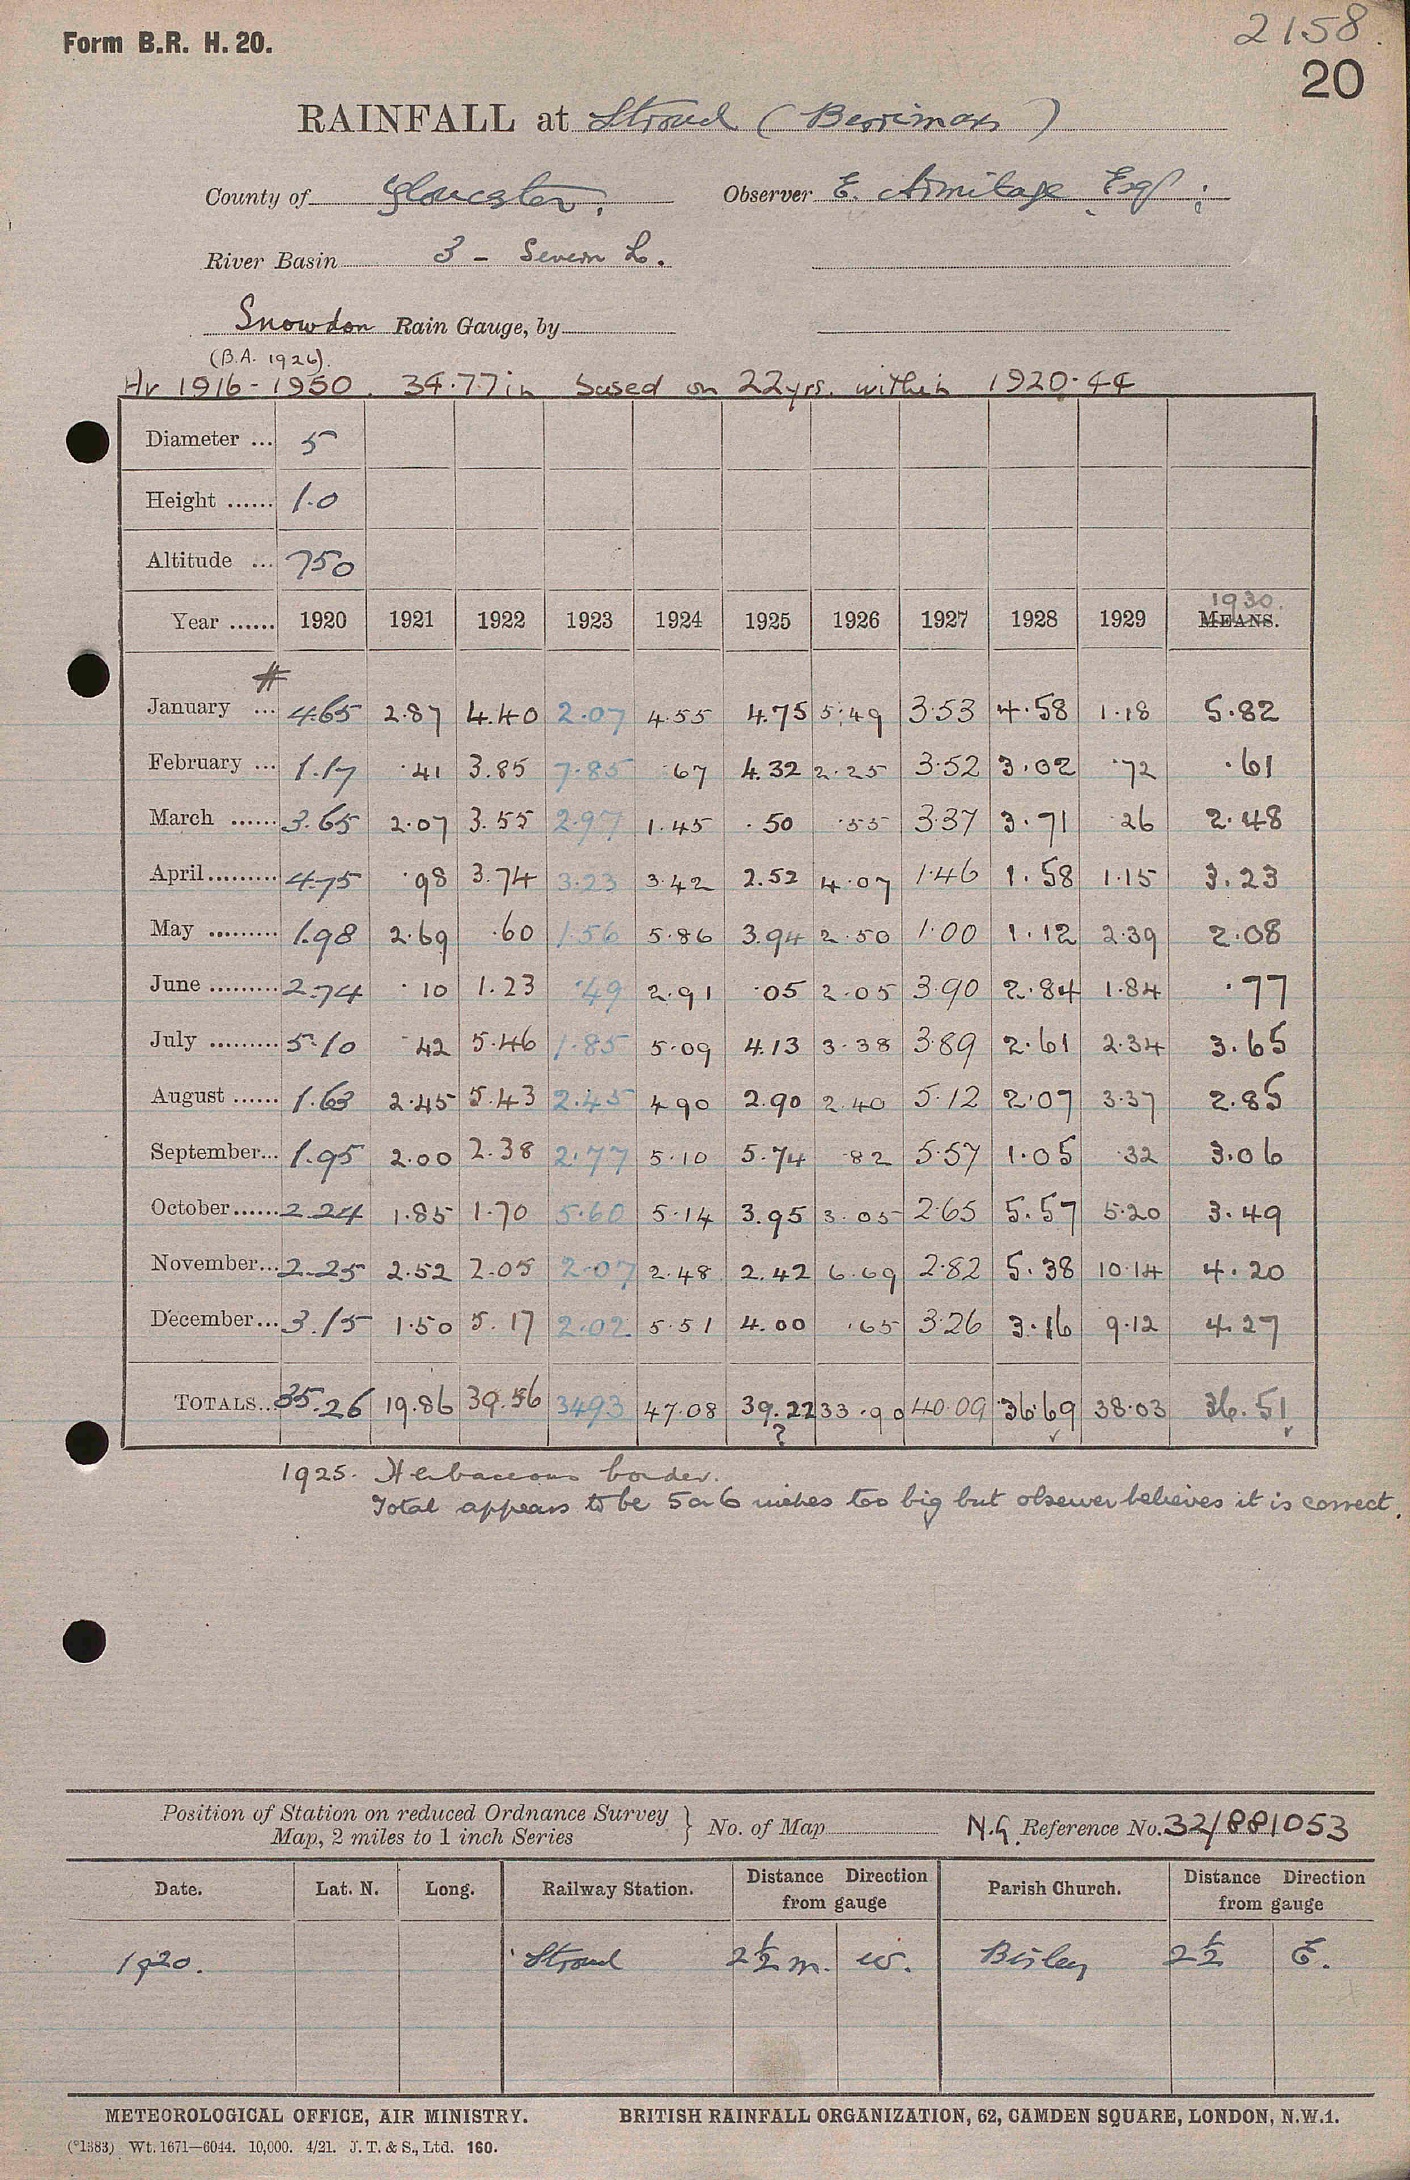 Form B.R. H. 20.
2158.
20
RAINFALL at Stroud (Berrimans)
County of Gloucester. Observer E. Armitage, Esq.;
River Basin 3 - Severn L.
Snowdon Rain Gauge, by
(B.A. 1926).
Av 1916-1950. 34.77in based on 22yrs. within 1920-44
Diameter ... 5
Height ...... 1.0
Altitude ... 750
1930.
Year ...... 1920 1921 1922 1923 1924 1925 1926 1927 1928 1929 MEANS.
#
January ... 4.65 2.87 4.40 2.07 4.55 4.75 5.49 3.53 4.58 1.18 5.82
February ... 1.17 .41 3.85 7.85 .67 4.32 2.25 3.52 3.02 .72 .61
March ...... 3.65 2.07 3.55 2.97 1.45 .50 .55 3.37 3.71 .26 2.48
April ......... 4.75 .98 3.74 3.23 3.42 2.52 4.07 1.46 1.58 1.15 3.23
May ......... 1.98 2.69 .60 1.56 5.86 3.94 2.50 1.00 1.12 2.39 2.08
June ......... 2.74 .10 1.23 .49 2.91 .05 2.05 3.90 2.84 1.84 .77
July ......... 5.10 .42 5.46 1.85 5.09 4.13 3.38 3.89 2.61 2.34 3.65
August ...... 1.63 2.45 5.43 2.45 4.90 2.90 2.40 5.12 2.07 3.37 2.85
September... 1.95 2.00 2.38 2.77 5.10 5.74 .82 5.57 1.05 .32 3.06
October...... 2.24 1.85 1.70 5.60 5.14 3.95 3.05 2.65 5.57 5.20 3.49
November... 2.25 2.52 2.05 2.07 2.48 2.42 6.69 2.82 5.38 10.14 4.20
December... 3.15 1.50 5.17 2.02 5.51 4.00 .65 3.26 3.16 9.12 4.27
TOTALS.. 35.26 19.86 39.56 34.93 47.08 39.22 33.90 40.09 36.69 38.03 36.51
?
1925. Herbaceous border.
Total appears to be 5 or 6 inches too big but observer believes it is correct.
Position of Station on reduced Ordnance Survey
Map, 2 miles to 1 inch Series } No. of Map N.G. Reference No. 32/881053
Date. Lat. N. Long. Railway Station. Distance Direction from gauge Parish Church. Distance Direction from gauge
1920. Stroud 2½ m. W. Bisley 2½ E.
METEOROLOGICAL OFFICE, AIR MINISTRY. BRITISH RAINFALL ORGANIZATION, 62, CAMDEN SQUARE, LONDON, N.W.1.
(*1383) Wt. 1671—6044. 10,000. 4/21. J. T. & S., Ltd. 160.